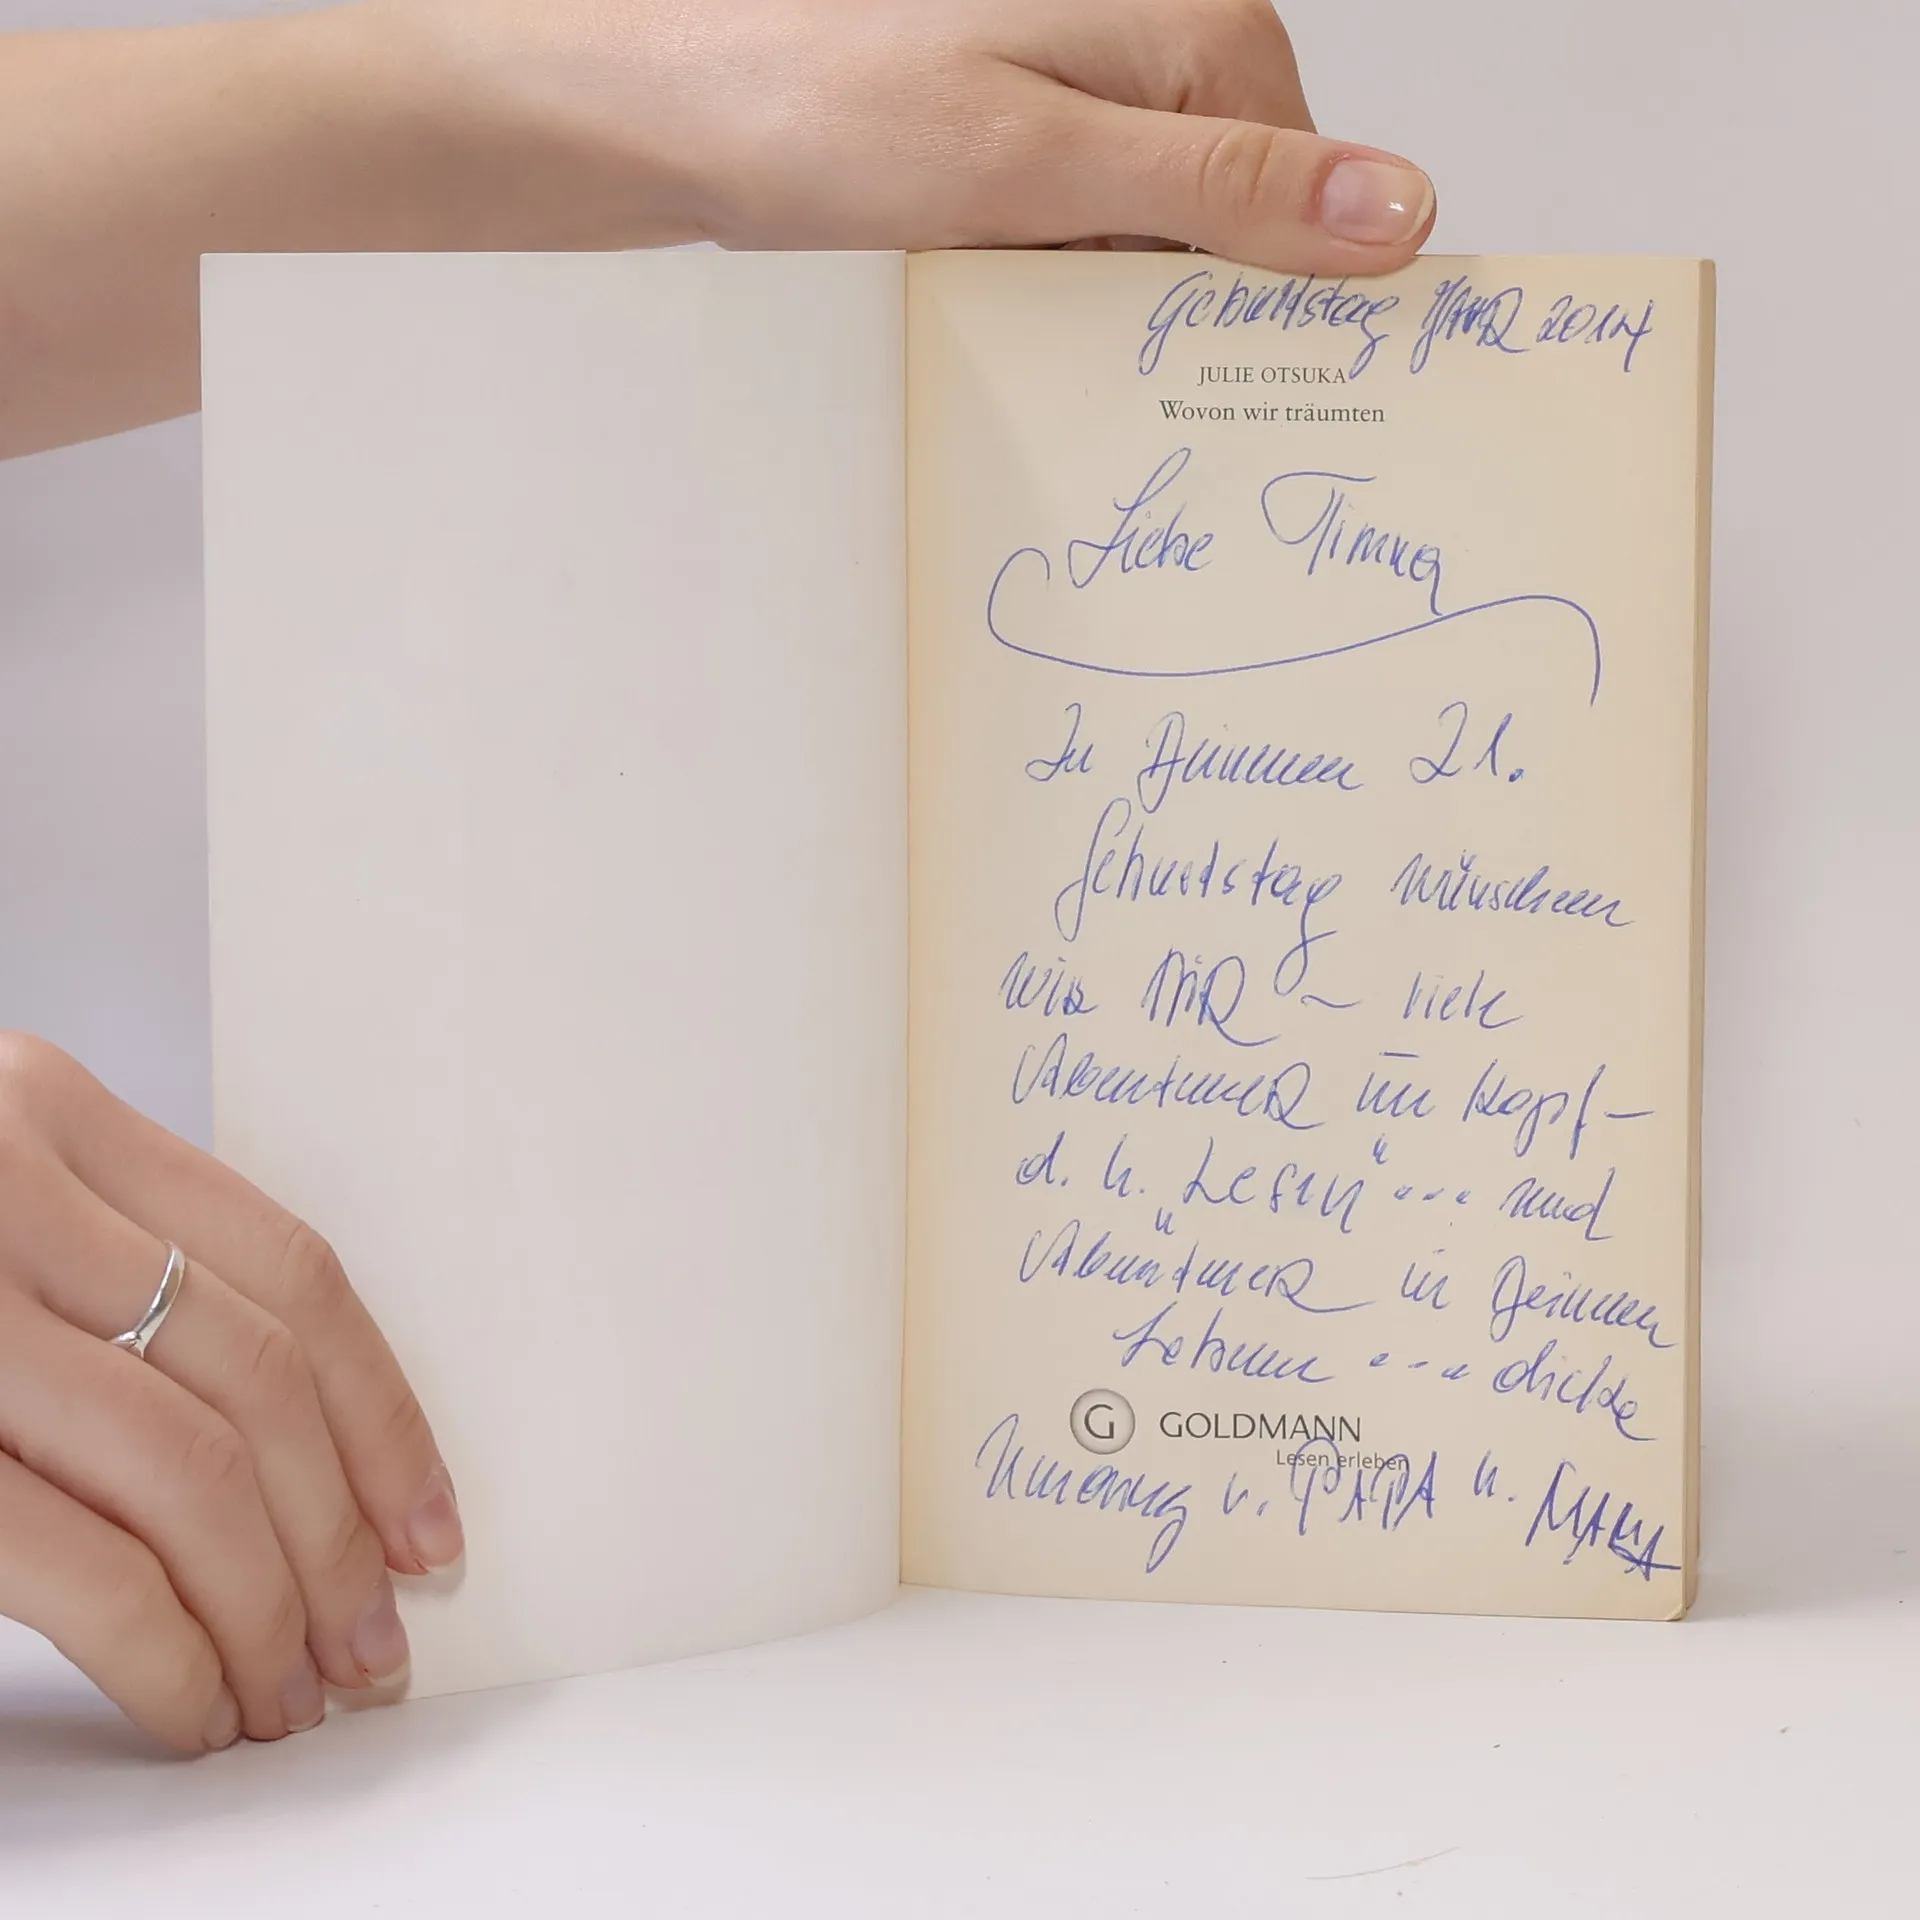 Geburtstag JAHR 2014
JULIE OTSUKA
Wovon wir träumten
Liebe Timna
Zu Deinem 21.
Geburtstag wünschen
wir DIR – viele
Abenteuer im Kopf –
d. h. "Lesen" ... und
Abenteuer in Deinem
Leben ... dicke
G GOLDMANN
Lesen erleben
Umarmung v. PAPA u. MAMA